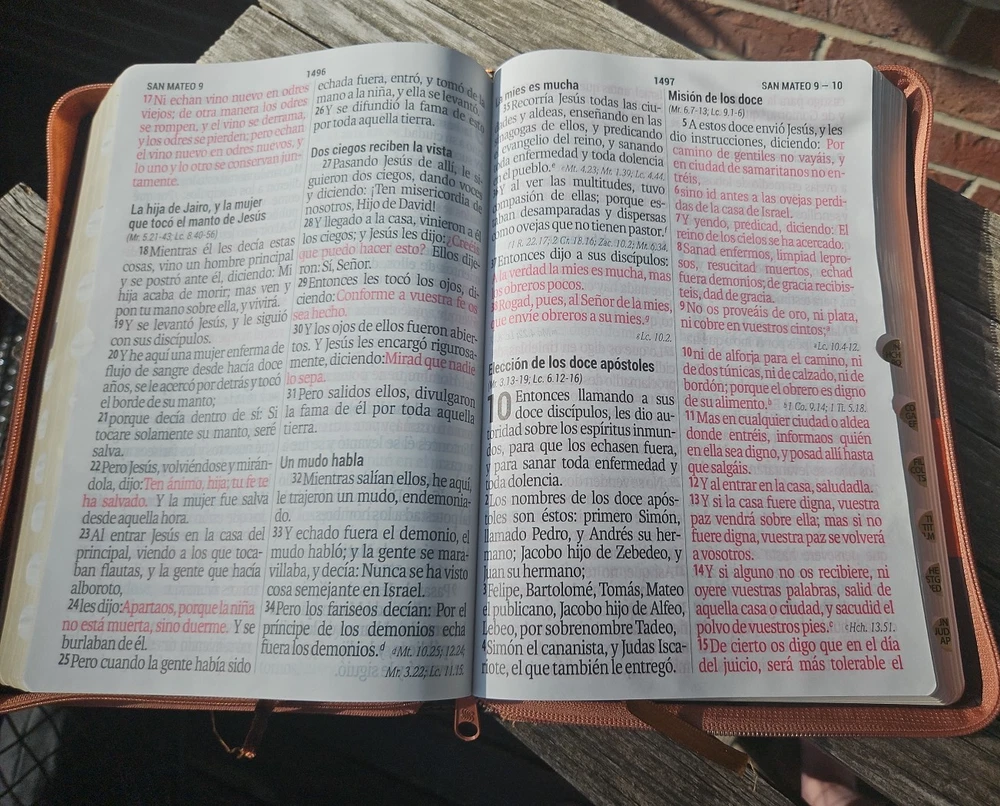 SAN MATEO 9
1496
17 Ni echan vino nuevo en odres
viejos; de otra manera los odres
se rompen, y el vino se derrama,
y los odres se pierden; pero echan
el vino nuevo en odres nuevos, y
lo uno y lo otro se conservan jun-
tamente.
La hija de Jairo, y la mujer
que tocó el manto de Jesús
(Mr. 5.21-43; Lc. 8.40-56)
18 Mientras él les decía estas
cosas, vino un hombre principal
y se postró ante él, diciendo: Mi
hija acaba de morir; mas ven y
pon tu mano sobre ella, y vivirá.
19 Y se levantó Jesús, y le siguió
con sus discípulos.
20 Y he aquí una mujer enferma de
flujo de sangre desde hacía doce
años, se le acercó por detrás y tocó
el borde de su manto;
21 porque decía dentro de sí: Si
tocare solamente su manto, seré
salva.
22 Pero Jesús, volviéndose y mirán-
dola, dijo: Ten ánimo, hija; tu fe te
ha salvado. Y la mujer fue salva
desde aquella hora.
23 Al entrar Jesús en la casa del
principal, viendo a los que toca-
ban flautas, y la gente que hacía
alboroto,
24 les dijo: Apartaos, porque la niña
no está muerta, sino duerme. Y se
burlaban de él.
25 Pero cuando la gente había sido
echada fuera, entró, y tomó de la
mano a la niña, y ella se levantó.
26 Y se difundió la fama de esto
por toda aquella tierra.
Dos ciegos reciben la vista
27 Pasando Jesús de allí, le si-
guieron dos ciegos, dando voces
y diciendo: ¡Ten misericordia de
nosotros, Hijo de David!
28 Y llegado a la casa, vinieron a él
los ciegos; y Jesús les dijo: ¿Creéis
que puedo hacer esto? Ellos dije-
ron: Sí, Señor.
29 Entonces les tocó los ojos, di-
ciendo: Conforme a vuestra fe os
sea hecho.
30 Y los ojos de ellos fueron abier-
tos. Y Jesús les encargó rigurosa-
mente, diciendo: Mirad que nadie
lo sepa.
31 Pero salidos ellos, divulgaron
la fama de él por toda aquella
tierra.
Un mudo habla
32 Mientras salían ellos, he aquí,
le trajeron un mudo, endemonia-
do.
33 Y echado fuera el demonio, el
mudo habló; y la gente se mara-
villaba, y decía: Nunca se ha visto
cosa semejante en Israel.
34 Pero los fariseos decían: Por el
príncipe de los demonios echa
fuera los demonios.d d Mt. 10.25; 12.24;
Mr. 3.22; Lc. 11.15.
1497
SAN MATEO 9 — 10
La mies es mucha
35 Recorría Jesús todas las ciu-
dades y aldeas, enseñando en las
sinagogas de ellos, y predicando
el evangelio del reino, y sanando
toda enfermedad y toda dolencia
en el pueblo.e e Mt. 4.23; Mr. 1.39; Lc. 4.44.
36 Y al ver las multitudes, tuvo
compasión de ellas; porque es-
taban desamparadas y dispersas
como ovejas que no tienen pastor.f
f 1 R. 22.17; 2 Cr. 18.16; Zac. 10.2; Mr. 6.34.
37 Entonces dijo a sus discípulos:
A la verdad la mies es mucha, mas
los obreros pocos.
38 Rogad, pues, al Señor de la mies,
que envíe obreros a su mies.g
g Lc. 10.2.
Elección de los doce apóstoles
(Mr. 3.13-19; Lc. 6.12-16)
10 Entonces llamando a sus
doce discípulos, les dio au-
toridad sobre los espíritus inmun-
dos, para que los echasen fuera,
y para sanar toda enfermedad y
toda dolencia.
2 Los nombres de los doce após-
toles son éstos: primero Simón,
llamado Pedro, y Andrés su her-
mano; Jacobo hijo de Zebedeo, y
Juan su hermano;
3 Felipe, Bartolomé, Tomás, Mateo
el publicano, Jacobo hijo de Alfeo,
Lebeo, por sobrenombre Tadeo,
4 Simón el cananista, y Judas Isca-
riote, el que también le entregó.
Misión de los doce
(Mr. 6.7-13; Lc. 9.1-6)
5 A estos doce envió Jesús, y les
dio instrucciones, diciendo: Por
camino de gentiles no vayáis, y
en ciudad de samaritanos no en-
tréis,
6 sino id antes a las ovejas perdi-
das de la casa de Israel.
7 Y yendo, predicad, diciendo: El
reino de los cielos se ha acercado.
8 Sanad enfermos, limpiad lepro-
sos, resucitad muertos, echad
fuera demonios; de gracia recibis-
teis, dad de gracia.
9 No os proveáis de oro, ni plata,
ni cobre en vuestros cintos;a
a Lc. 10.4-12.
10 ni de alforja para el camino, ni
de dos túnicas, ni de calzado, ni de
bordón; porque el obrero es digno
de su alimento.b b 1 Co. 9.14; 1 Ti. 5.18.
11 Mas en cualquier ciudad o aldea
donde entréis, informaos quién
en ella sea digno, y posad allí hasta
que salgáis.
12 Y al entrar en la casa, saludadla.
13 Y si la casa fuere digna, vuestra
paz vendrá sobre ella; mas si no
fuere digna, vuestra paz se volverá
a vosotros.
14 Y si alguno no os recibiere, ni
oyere vuestras palabras, salid de
aquella casa o ciudad, y sacudid el
polvo de vuestros pies.c c Hch. 13.51.
15 De cierto os digo que en el día
del juicio, será más tolerable el